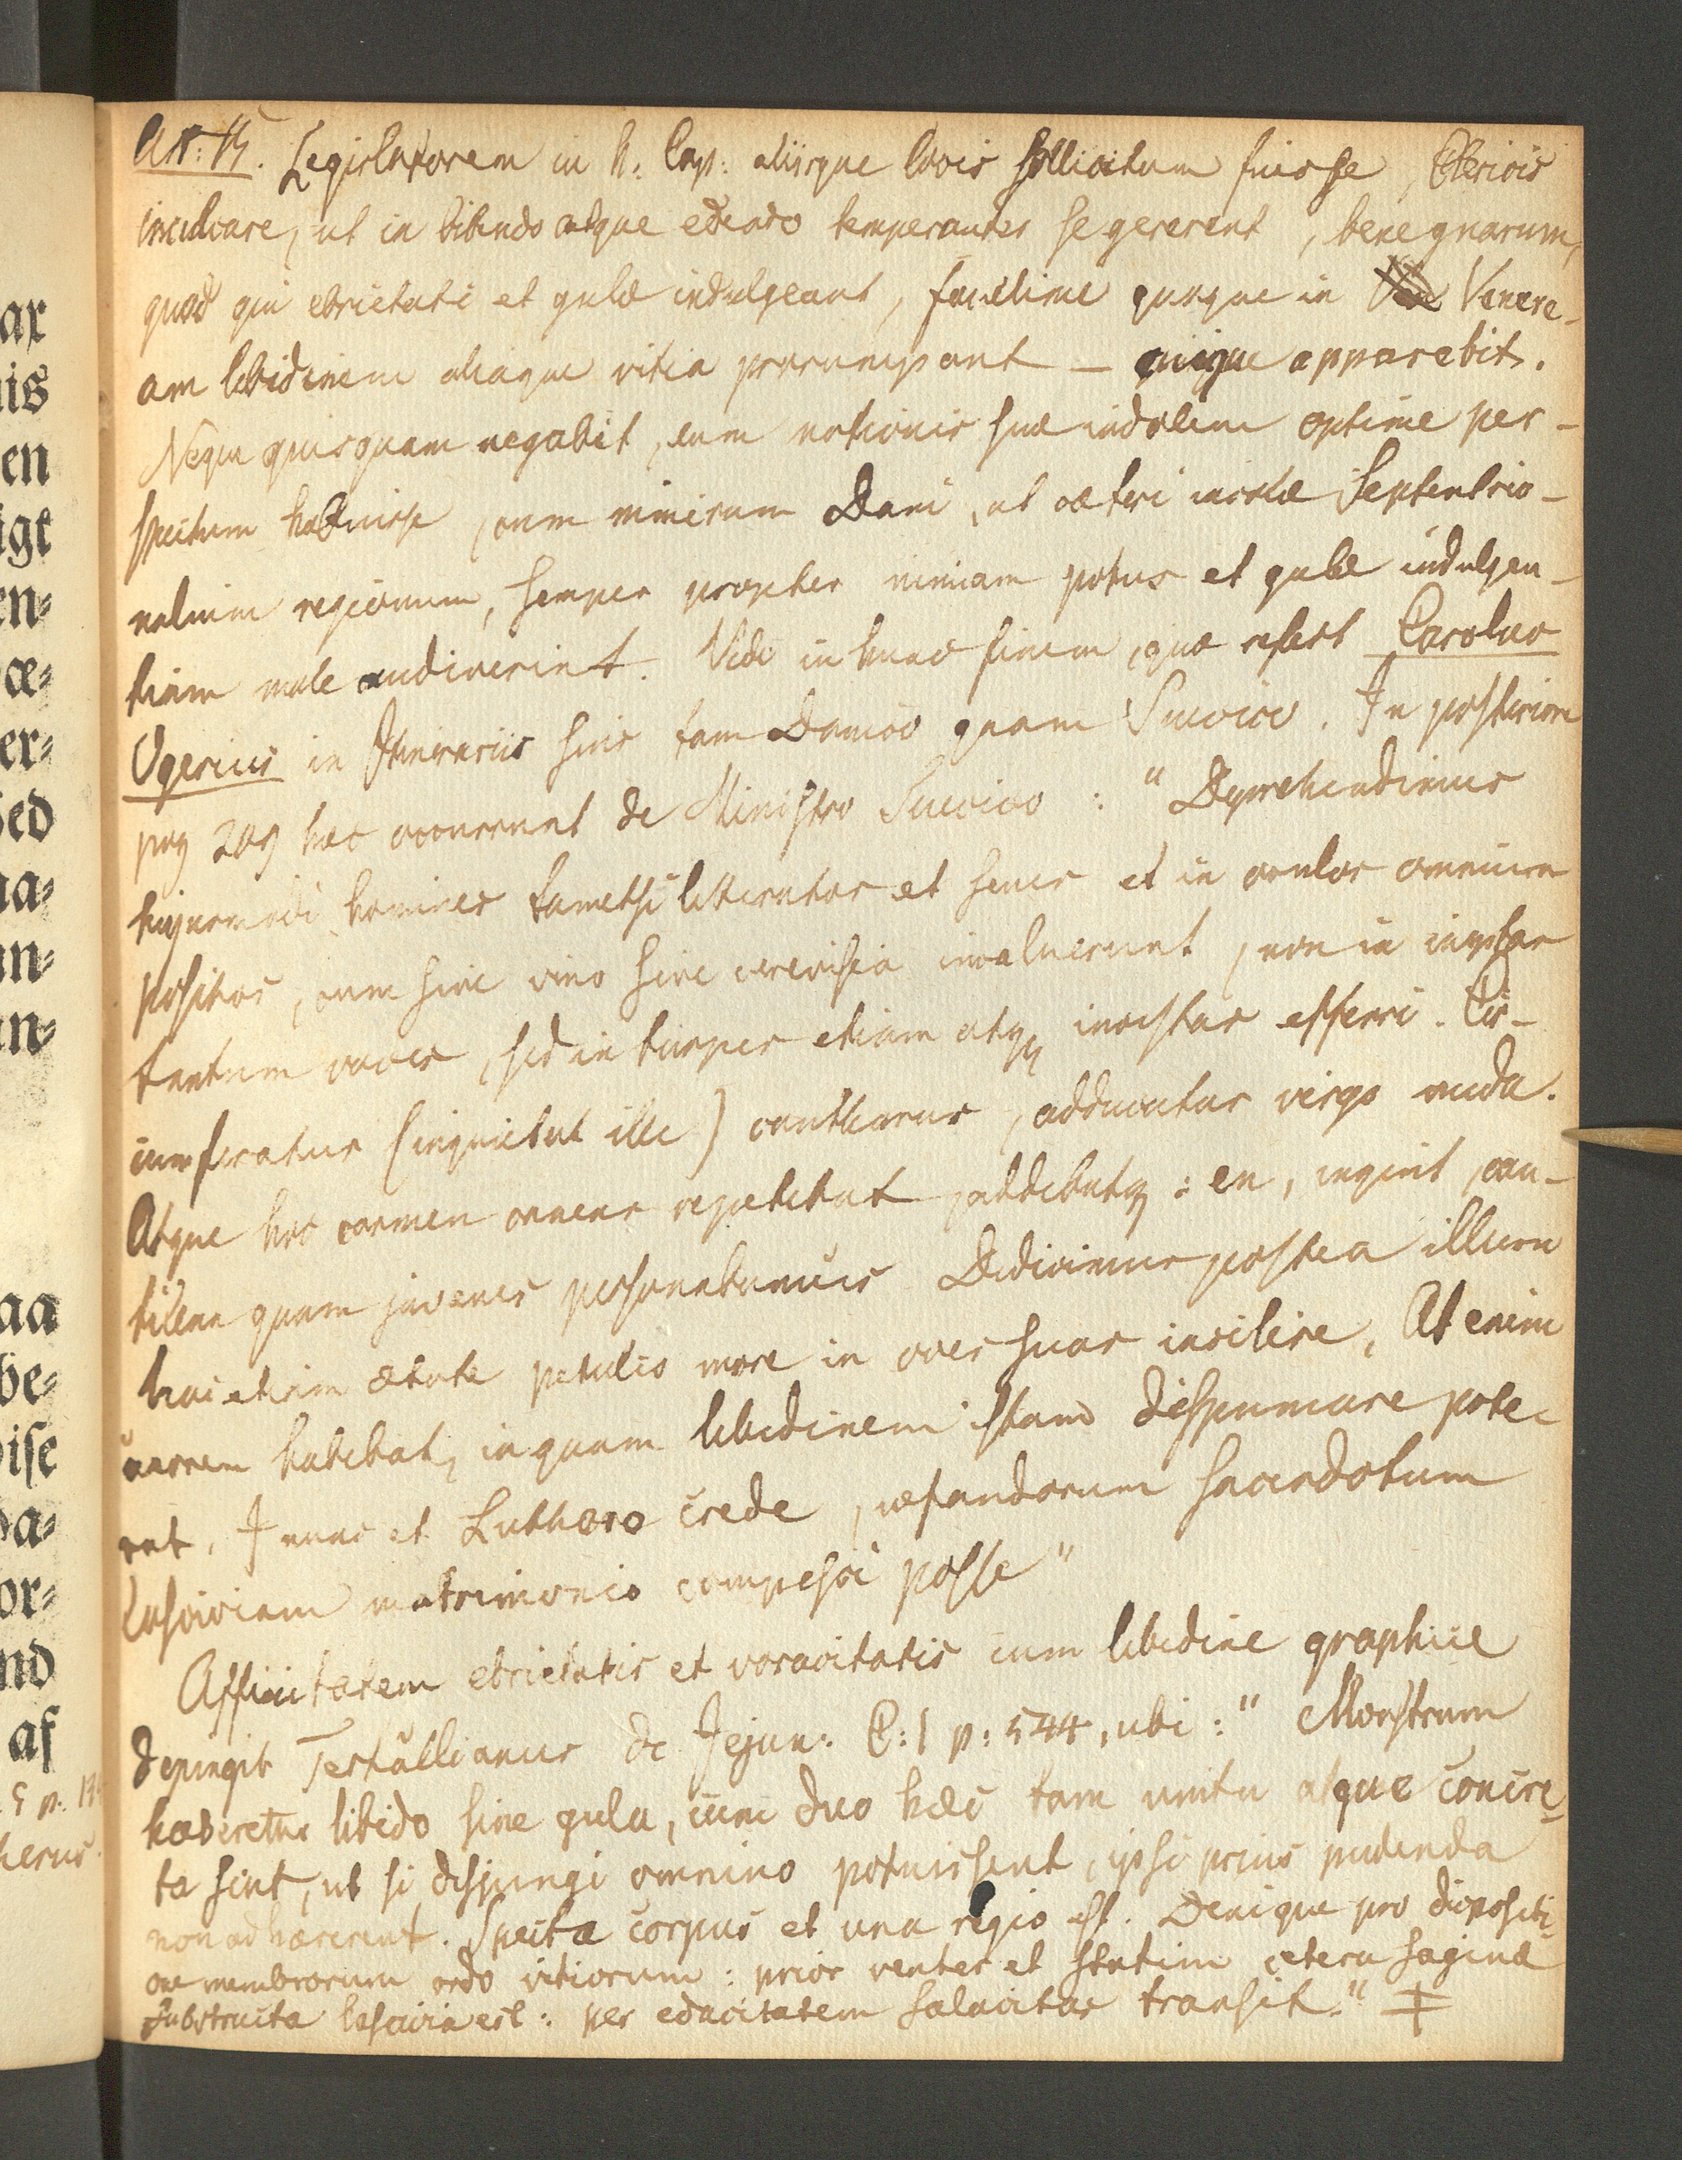 Art: 15. Legislatorem in h: Cap: aliisque locis sollicitum fuisse, Clericis
inculcare, ut in bibendo atque edendo temperantes se gererent, bene gnarum,
quod qui ebrietati et gulæ indulgeant, facillime quoque in Venere-
am libidinem aliaque vitia prorumpant – cuique apparebit.
Neque quisquam negabit, eum nationis suæ indolem optime per-
spectum habuisse, cum nimirum Dani, ut cæteri incolæ Septentrio-
nalium regionum, semper propter nimiam potus et gulæ indulgen-
tiam male audiverint. Vide in hunc finem, quæ refert Carolus
Ogerius in Itinerariis suis tam Danico quam Suecico. In posteriore
pag 209 hæc occurrunt de Ministro Suecico: "Deprehendimus
hujusmodi homines tametsi litteratos et senes et in oculos omnium
positos, cum sive vino sive cerevisia incaluerunt, non in ineptas
tantum voces, sed in turpes etiam atq; incestas efferri. Cir-
cumferatur (inquiebat ille) cantharus, adducatur virgo nuda.
Atque hoc carmen canens repetebat, addebatq; : en, inquit, can-
tilena quam juvenes personabamus. Didicimus postea illum
hac etiam ætate petulco more in oves suas insilire, At enim
uxorem habebat, in quam libidinem istam despumare pote-
rat. I nunc et Luthero crede, nefandorum sacerdotum
lasciviam matrimonio compesci posse"
Affinitatem ebrietatis et voracitatis cum libidine graphice
depingit Tertullianus de Jejun. C: 1 p: 544, ubi: " Monstrum
haberetur libido sine gula, cum duo hæc tam unita atque concre-
ta sint, ut si disjungi omnino potuissent, ipsi prius pudenda
non adhærerent. Specta corpus et una regio est. Denique pro dispositi-
one membrorum ordo vitiorum: prior venter et statim cetera saginæ
substructa lascivia est: per edacitatem salacitas transit." ‡
ar
is
en
igt
en-
æ-
er-
sed
na-
in-
in-
aa
be-
ise
da-
or-
nd
af